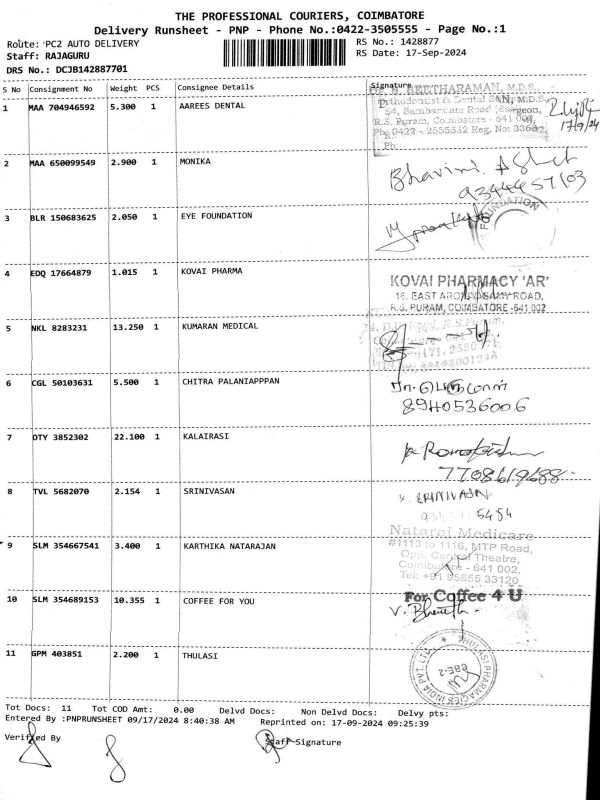 THE PROFESSIONAL COURIERS, COIMBATORE
Delivery Runsheet - PNP - Phone No.:0422-3505555 - Page No.:1
Route: PC2 AUTO DELIVERY
RS No.: 1428877
Staff: RAJAGURU
RS Date: 17-Sep-2024
DRS No.: DCJB142887701
S No Consignment No Weight PCS Consignee Details Signature
1 MAA 704946592 5.300 1 AAREES DENTAL
SEETHARAMAN, M.D.S.
Orthodontist & Dental Surgeon,
54, Sambandam Road
R.S. Puram, Coimbatore - 641 002
Ph: 0422 - 2555532 Reg. No: 33602,
Ph.
17/9/24
2 MAA 650099549 2.900 1 MONIKA
9344457103
3 BLR 150683625 2.050 1 EYE FOUNDATION
FOUNDATION
4 EDQ 17664879 1.015 1 KOVAI PHARMA
KOVAI PHARMACY 'AR'
16, EAST AROKIASAMY ROAD,
R.S. PURAM, COIMBATORE -641 002
5 NKL 8283231 13.250 1 KUMARAN MEDICAL
Road, R.S. Puram,
6 CGL 50103631 5.500 1 CHITRA PALANIAPPPAN
பெருமாள்
8940536006
7 OTY 3852302 22.100 1 KALAIRASI
7708619688
8 TVL 5682070 2.154 1 SRINIVASAN
SRINIVASN
5454
9 SLM 354667541 3.400 1 KARTHIKA NATARAJAN
Nataraj Medicare
#1113 to 1116, MTP Road,
Opp. Central Theatre,
Coimbatore - 641 002,
Tel: +91 95855 33120
10 SLM 354689153 10.355 1 COFFEE FOR YOU
For Coffee 4 U
V. Bharath
11 GPM 403851 2.200 1 THULASI
THULASI PHARMACIES INDIA PVT. LTD.
CBE-2
Tot Docs: 11 Tot COD Amt: 0.00 Delvd Docs: Non Delvd Docs: Delvy pts:
Entered By :PNPRUNSHEET 09/17/2024 8:40:38 AM Reprinted on: 17-09-2024 09:25:39
Verified By
Staff Signature